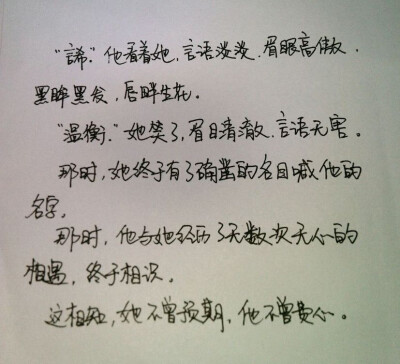 “諦.”他看着她,言语淡淡.眉眼高傲.
黑眸黑发,唇畔生花。
“温衡.”她笑了,眉目清澈.言语无害。
那时,她终于有了确凿的名目喊他的
名字.
那时,他与她经历了无数次无心的
相遇,终于相识。
这相知,她不曾预期,他不曾费心。